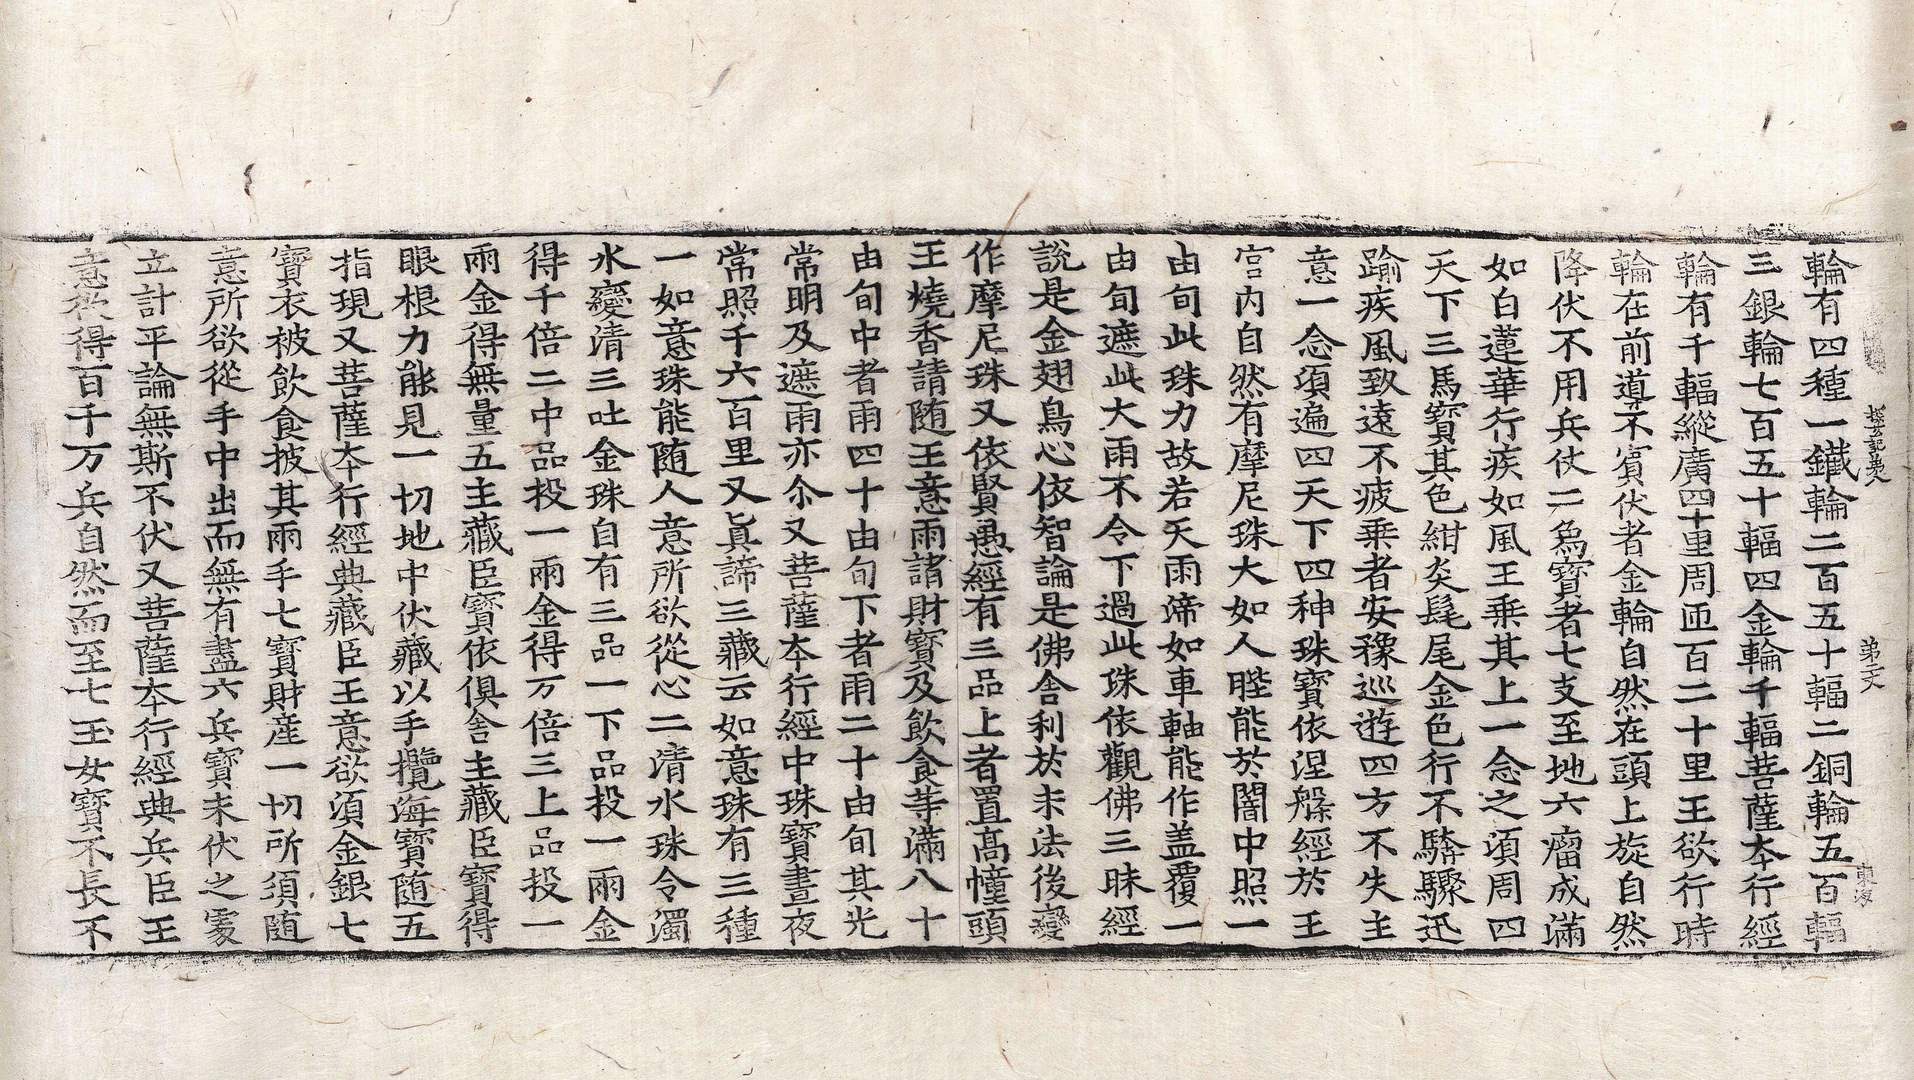 輪有四種一鐵輪二百五十輻二銅輪五百輻
三銀輪七百五十輻四金輪千輻菩薩本行經
輪有千輻縱廣四十里周迊百二十里王欲行時
輪在前導不賓伏者金輪自然在頭上旋自然
降伏不用兵仗二爲寶者七支至地六瘤成滿
如白蓮華行疾如風王乘其上一念之湏周四
天下三馬寶其色紺炎髦尾金色行不驕驟迅
踰疾風致遠不疲乗者安豫巡遊四方不失主
意一念湏遍四天下四神珠寶依涅槃經於王
宮内自然有摩尼珠大如人䏶能於闇中照一
由旬此珠力故若天雨渧如車軸能作盖覆一
由旬遮此大雨不令下過此珠依觀佛三昧經
說是金翅鳥心依智論是佛舍利於末法後變
作摩尼珠又依賢愚經有三品上者置高幢頭
王燒香請随王意雨諸財寶及飲食䓁滿八十
由旬中者雨四十由旬下者雨二十由旬其光
常明及遮雨亦尒又菩薩本行經中珠寶晝夜
常照千六百里又眞諦三藏云如意珠有三種
一如意珠能随人意所欲從心二清水珠令濁
水變清三吐金珠自有三品一下品投一兩金
得千倍二中品投一兩金得万倍三上品投一
兩金得無量五主藏臣寶依俱舍主藏臣寶得
眼根力能見一切地中伏藏以手攬海寶随五
指現又菩薩本行經典藏臣王意欲湏金銀七
寶衣被飲食披其兩手七寶財産一切所須随
意所欲從手中出而無有盡六兵寶未伏之䖏
立計平論無斯不伏又菩薩本行經典兵臣王
意欲得百千万兵自然而至七玉女寶不長不